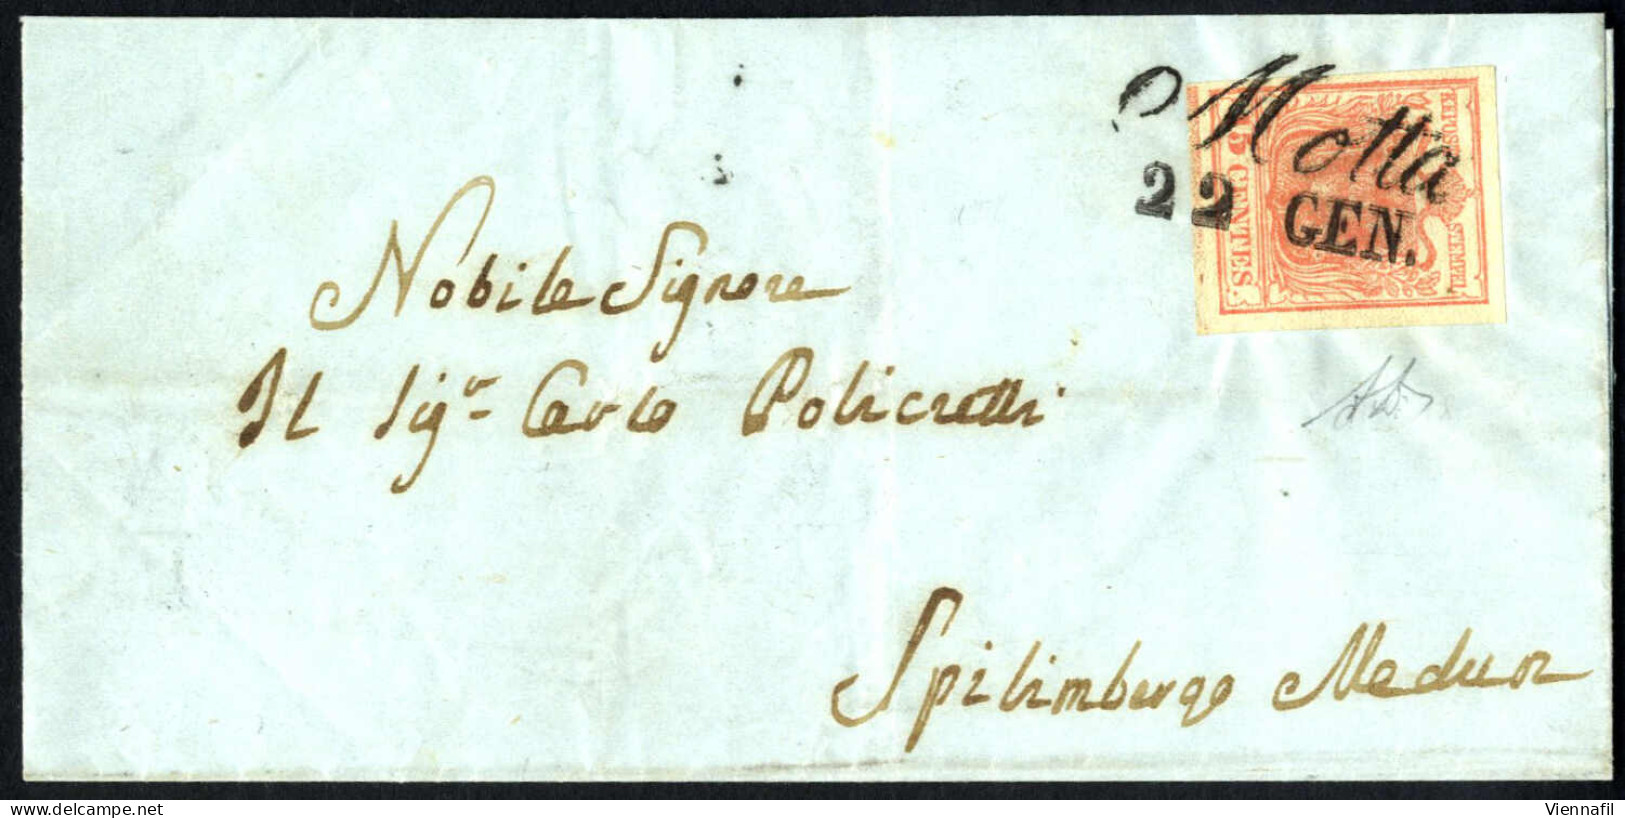 Motta
22 GEN.
KK POST STEMPEL
15 CENTES.
Nobile Signore
Il Sigr Carlo Policretti
Spilimbergo Medun
Viennafil